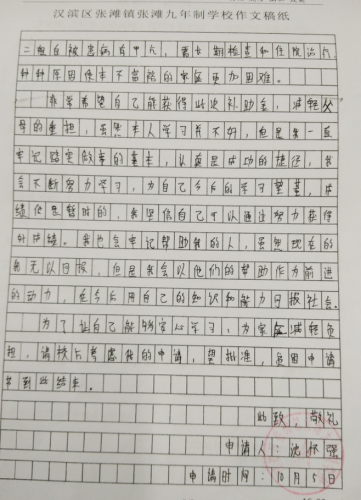 汉滨区张滩镇张滩九年制学校作文稿纸
二姐自被患病 后 中六，需长期检查和住院治疗
种种原因使本不富裕的家庭更加困难。
我学希望自己能获得此次补助金，减轻父
母的重担，虽然本人学习并不好，但是我一直
牢记踏实做事的基本，认真是成功的捷径，我
会不断努力学习，为自己今后的学习奠基，成
绩但是暂时的，我坚信自己可以通过努力获得
好成绩。我也会牢记帮助我的人，虽然现在的
我无以回报，但是我会以他们的帮助作为前进
的动力，在今后用自己的知识和能力回报社会。
为了让自己能够安心学习，为家庭减轻负
担，请校方考虑我的申请，望批准，贫困申请
书到此结束。
此致，敬礼
申请人：沈怀强
申请时间：10月5日